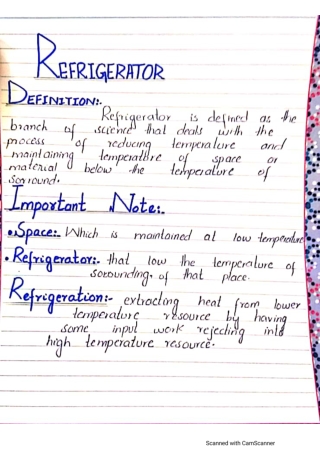 REFRIGERATOR
DEFINITION:-
Refrigerator is defined as the
branch of science that deals with the
process of reducing temperature and
maintaining temperature of space or
material below the temperature of
sorround.
Important Note:-
• Space:- Which is maintained at low temperature
• Refrigerator:- that low the temperature of
sorounding, of that place.
Refrigeration:- extracting heat from lower
temperature resource by having
some input work rejecting into
high temperature resource.
Scanned with CamScanner